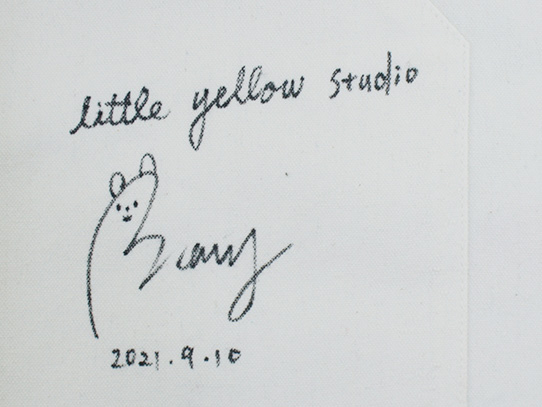 little yellow studio
Beary
2021.9.10